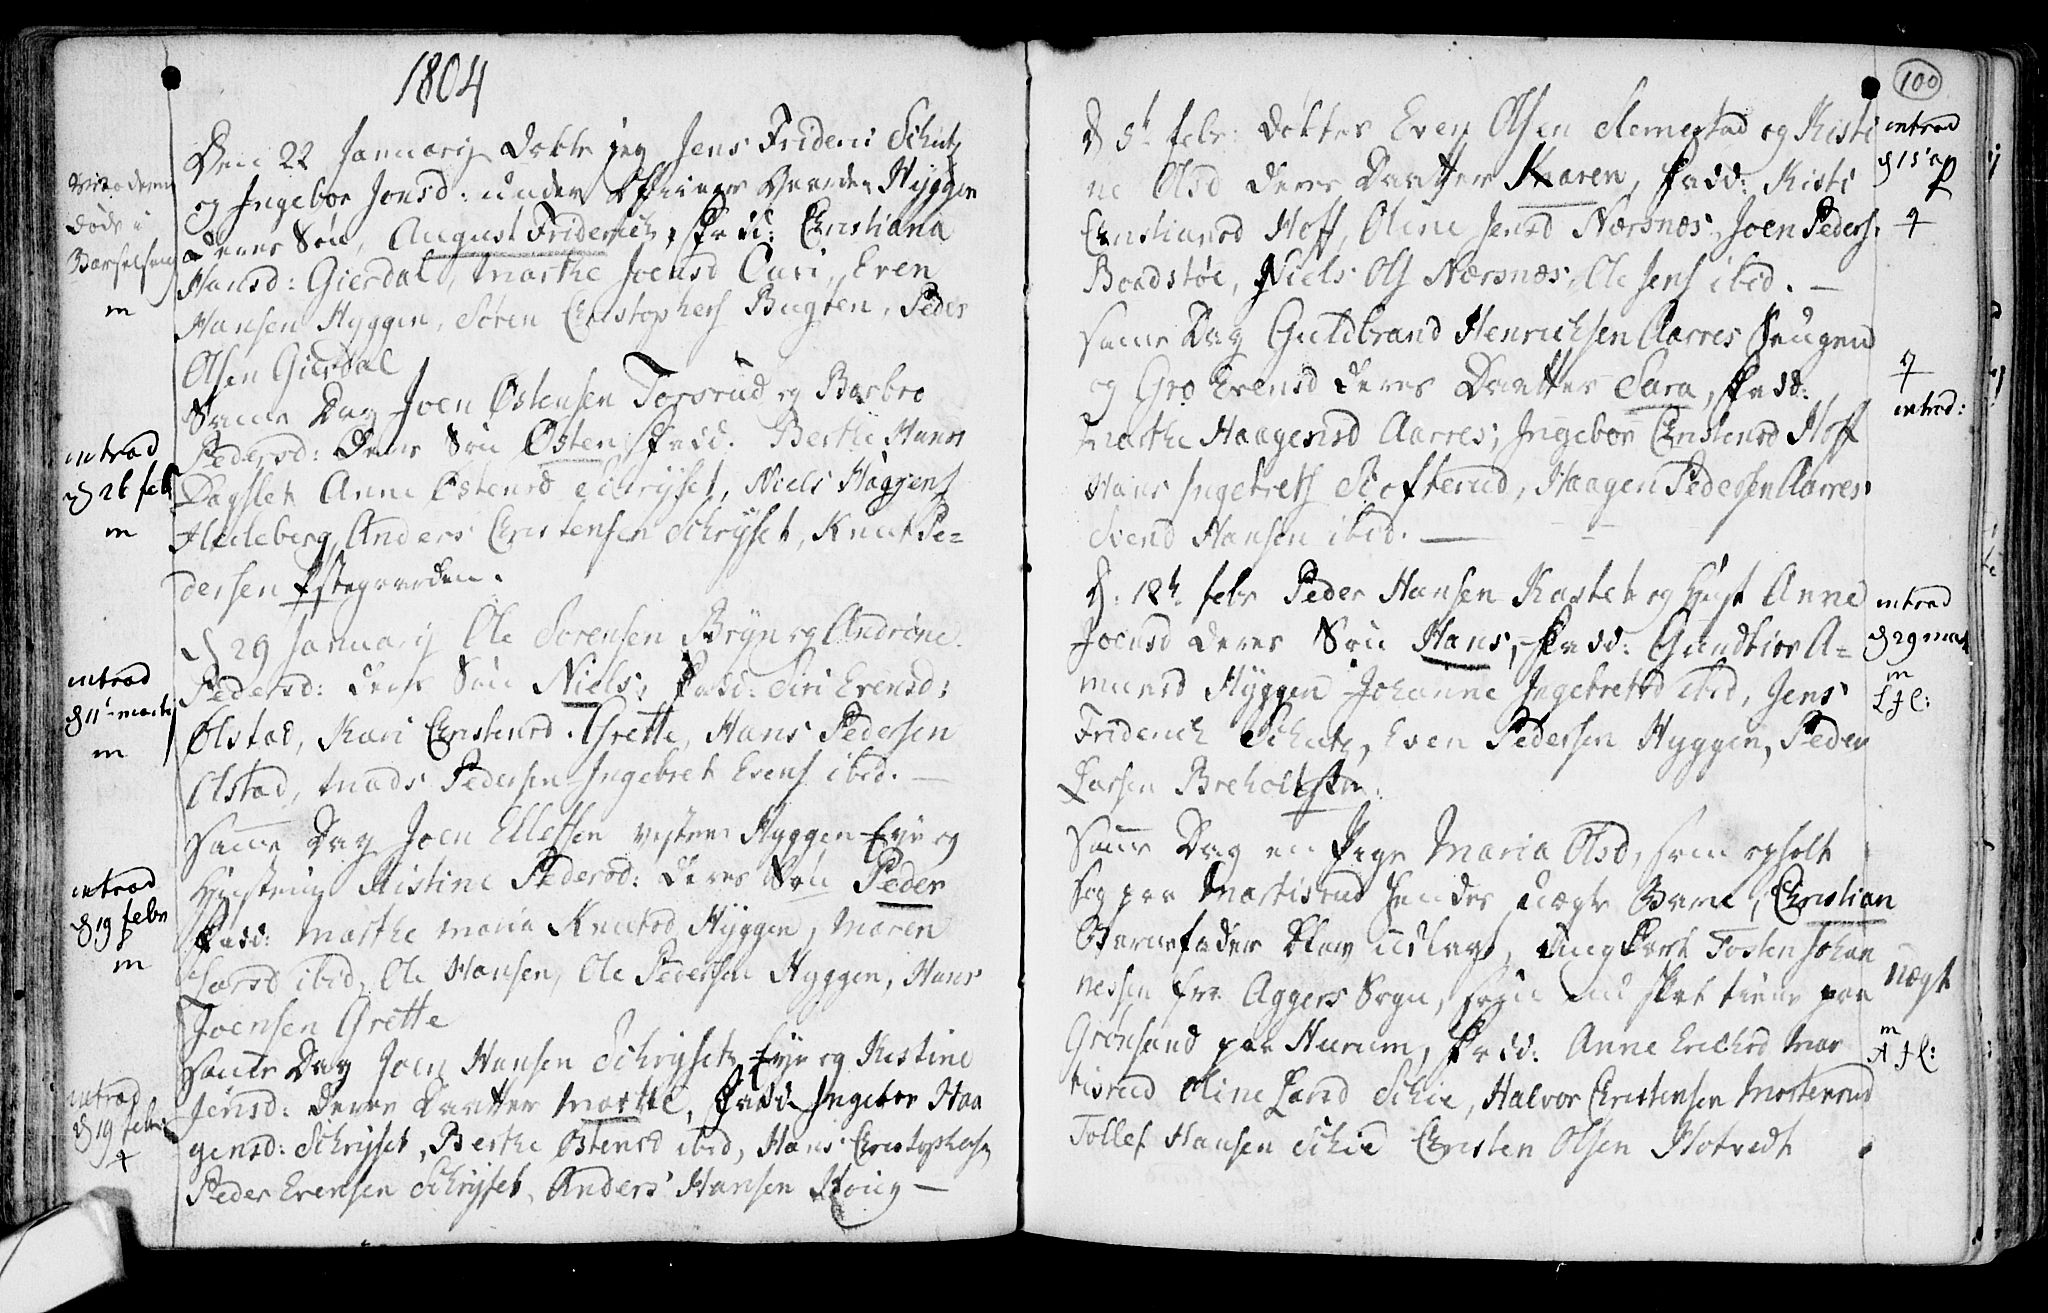 1804
Den 22 Januarij Døbte jeg Jens Frideric Schutz
og Ingebor Jonsd: under Hyggen
deres Søn, August Friderich, Fadd: Christiana
Hansd: Gierdal, Marthe Joensd Curi, Even
Hansen Hyggen, Søren Christophers Bugten, Peder
Olsen Gierdal
Moderen
døde i
Barselseng
m
Samme Dag Joen Østensen Torsrud og Barbro
Pedersd: Deres Søn Østen, Fadd. Berthe Hans
Dagslet Anne Østensd Schryset, Niels Haggens
Hedeberg, Anders Christensen Schryset, Knut Pe=
dersen Pstegaarden.
introd
d 26 febr
m
d 29 Januarij Ole Sørensen Bryn og Andrine
Pedersd: deres Søn Niels, Fadd: Siri Evensd:
Ølstad, Kari Christensd. Grette, Hans Pedersen
Olstad, Mads Pedersen Ingebret Evens ibid. —
introd
d 11 marti
m
Samme Dag Joen Ellefsen vestre Hyggen Eye og
Hustrue Kistine Pedersd: deres Søn Peder
Fadd: Marthe Maria Knutsd Hyggen, Maren
Larsd ibid, Ole Hansen, Ole Pedersen Hyggen, Hans
Joensen Grette
introd
d 19 febr
m
Samme Dag Joen Hansen Schryset Eye og Kistine
Jensd: deres Daatter Marthe, Fadd Ingebor Haa
gensd: Schryset, Berthe Østensd ibid, Hans Christophersen
Peder Evensen Schryset, Anders Hansen Houg —
introd
d 19 febr
100
d 5t febr: døbtes Even Olsen Slemestad og Kisti
ne Olsd deres Daatter Karen, Fadd: Kisti
Christiansd Hoff, Oline Jensd Nærsnes, Joen Peders.
Boadstøe, Niels Ols Nærsnæs, Ole Jens ibid. —
introd
d 15 ap
Samme Dag Guldbrand Henrichsen Aarres Haugen
og Gro Evensd deres Daatter Sara, Fadd:
Marthe Haagensd Aarres, Ingebor Christensd Hoff
Hans Ingebrets Schofterud, Haagen Pedersen Aarres
Svend Hansen ibid. —
introd:
d: 12t febr Peder Hansen Kastet og Hust Anne
Joensd deres Søn Hans, Fadd: Gundbior A=
munsd Hyggen Johanne Ingebretsd ibid, Jens
Friderich Schutz, Even Pedersen Hyggen, Peder
Larsen Breholtstn.
introd
d 29 mart
m
Samme Dag en Pige Maria Olsd, som opholt
sig paa Mortisrud hendes uægte Barn, Christian
Barnefader blev udlagt, ungkarl Tosten Johan
nessen fra Aggers Sogn, som nu skal tiene paa
Grønsand paa Hurum, Fadd: Anne Erichsd Mor
tisrud Oline Larsd Schie, Halvor Christensen Mortensrud
Tollef Hansen Schie Christen Olsen Hotvedt
uægt
m